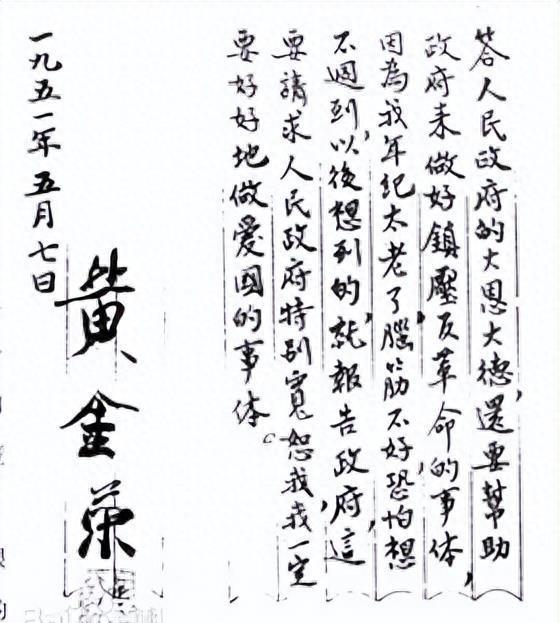 答人民政府的大恩大德，還要幫助
政府来做好鎮壓反革命的事体，
因為我年紀太老了，腦筋不好，恐怕想
不週到，以後想到的，就報告政府，這
要請求人民政府特别寬恕我，我一定
要好好地做愛國的事体。
一九五一年五月七日
黄金荣